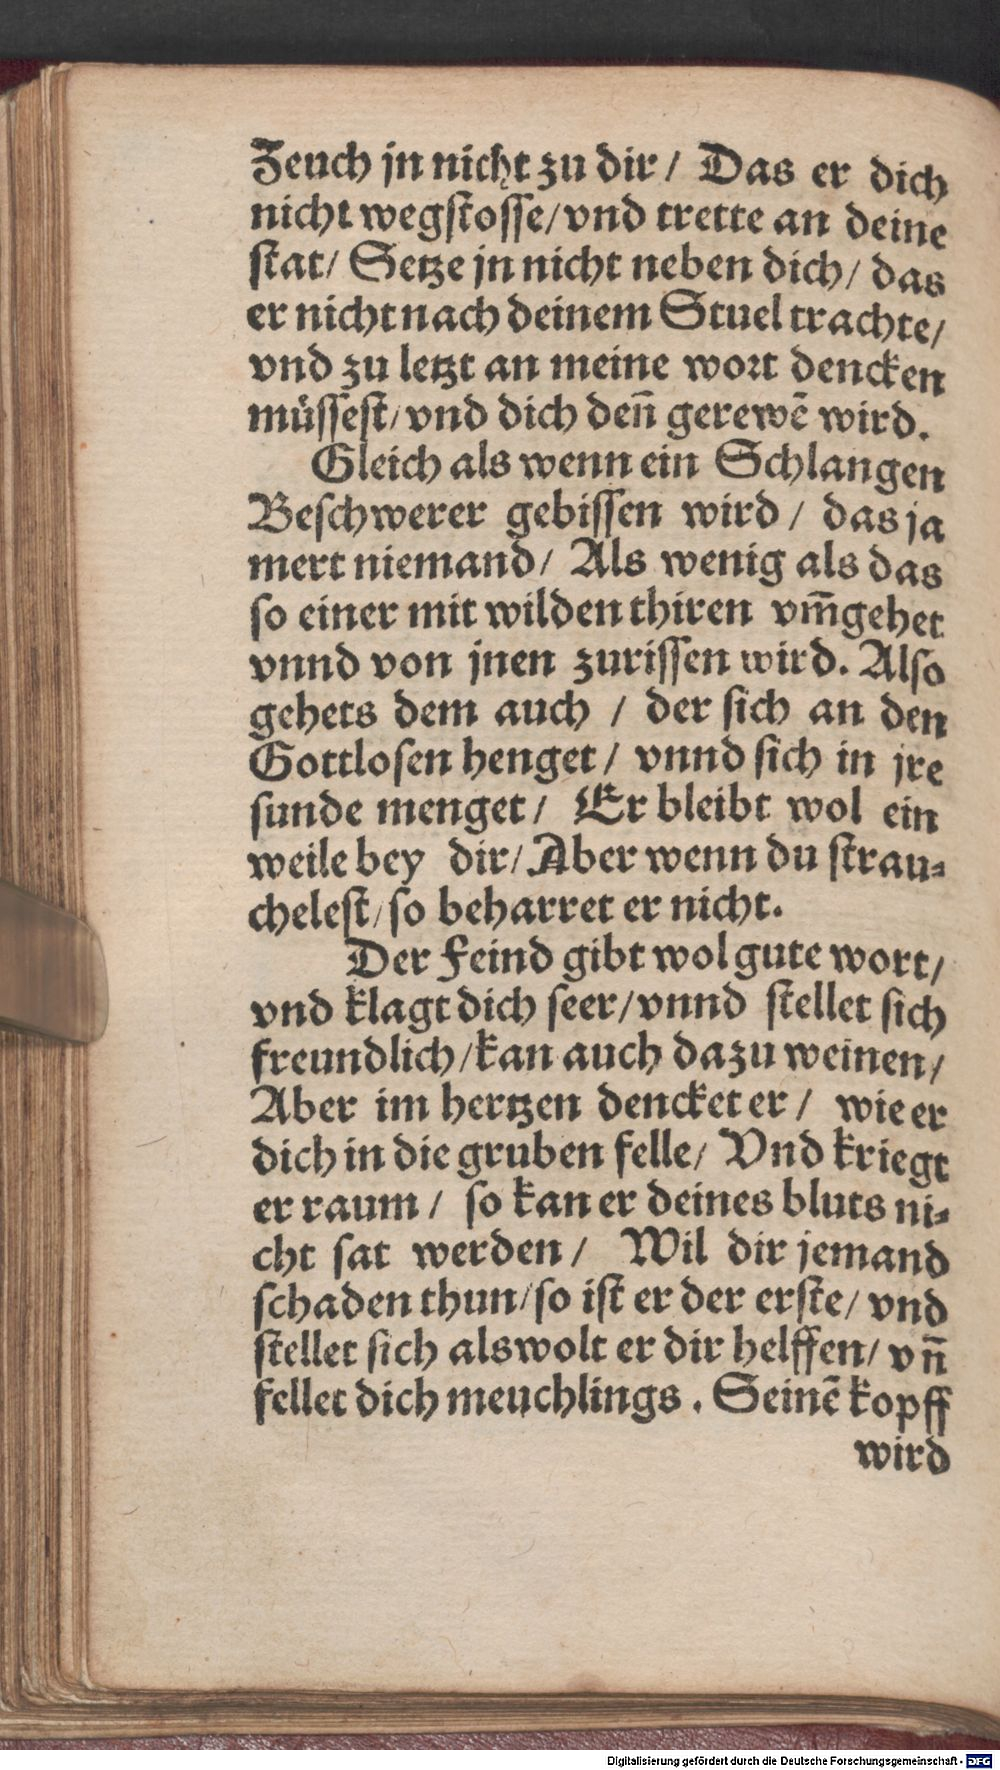 Zeuch jn nicht zu dir / Das er dich
nicht wegſtoſſe / vnd trette an deine
ſtat / Setze jn nicht neben dich / das
er nicht nach deinem Stuel trachte /
vnd zu letzt an meine wort dencken
müſſeſt / vnd dich den̄ gerewē wird.
Gleich als wenn ein Schlangen
Beſchwerer gebiſſen wird / das ja
mert niemand / Als wenig als das
ſo einer mit wilden thiren vm̄gehet
vnnd von jnen zuriſſen wird. Alſo
gehets dem auch / der ſich an den
Gottloſen henget / vnnd ſich in jre
ſunde menget / Er bleibt wol ein
weile bey dir / Aber wenn du ſtrau⸗
cheleſt / ſo beharret er nicht.
Der Feind gibt wol gute wort /
vnd klagt dich ſeer / vnnd ſtellet ſich
freundlich / kan auch dazu weinen /
Aber im hertzen dencket er / wie er
dich in die gruben felle / Vnd kriegt
er raum / ſo kan er deines bluts ni⸗
cht ſat werden / Wil dir jemand
ſchaden thun / ſo iſt er der erſte / vnd
ſtellet ſich als wolt er dir helffen / vn̄
fellet dich meuchlings. Seinē kopff
wird
Digitalisierung gefördert durch die Deutsche Forschungsgemeinschaft - DFG